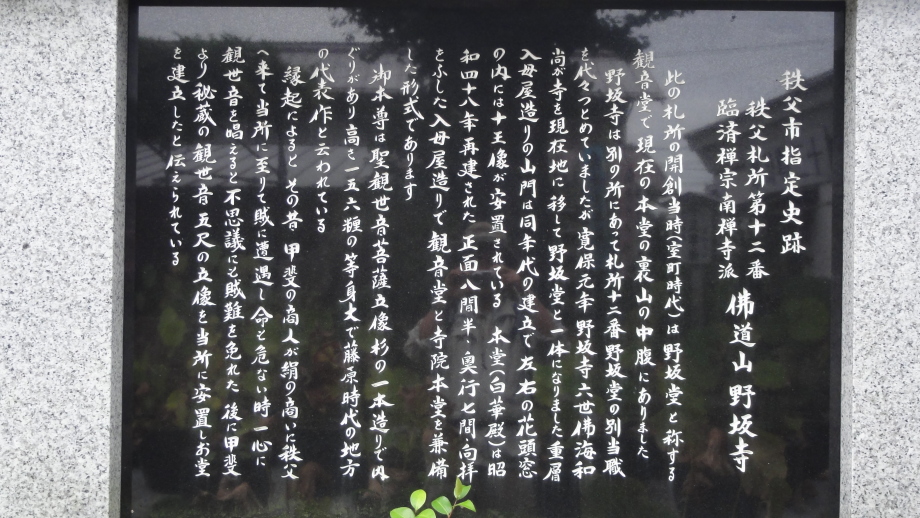 秩父市指定史跡
秩父札所第十二番
臨済禅宗南禅寺派
佛道山 野坂寺
此の札所の開創当時(室町時代)は野坂堂と称する
観音堂で現在の本堂の裏山の中腹にありました
野坂寺は別の所にあって札所十二番野坂堂の別当職
を代々つとめていましたが寛保元年野坂寺六世佛海和
尚が寺を現在地に移して野坂堂と一体になりました 重層
入母屋造りの山門は同年代の建立で左右の花頭窓
の内には十王像が安置されている 本堂(白華殿)は昭
和四十八年再建された 正面八間半・奥行七間・向拝
をふした入母屋造りで観音堂と寺院本堂を兼備
した形式であります
御本尊は聖観世音菩薩立像杉の一本造りで内
ぐりがあり高さ一五六糎の等身大で藤原時代の地方
の代表作と云われている
縁起によると その昔 甲斐の商人が絹の商いに秩父
へ来て当所に至りて賊に遭遇し命も危ない時一心に
観世音を唱えると不思議にも賊難を免れた 後に甲斐
より秘蔵の観世音 五尺の立像を当所に安置しお堂
を建立したと伝えられている